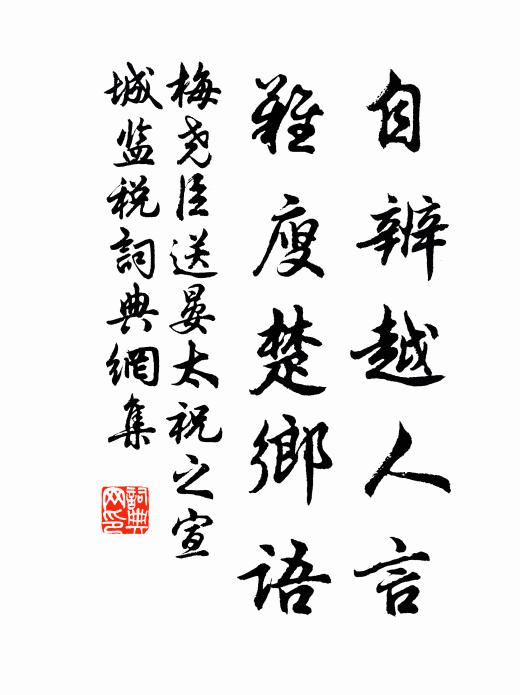 自辨越人言
難廋楚鄉語
梅尧臣送晏太祝之宣
城监税詞典網集
詞典网印